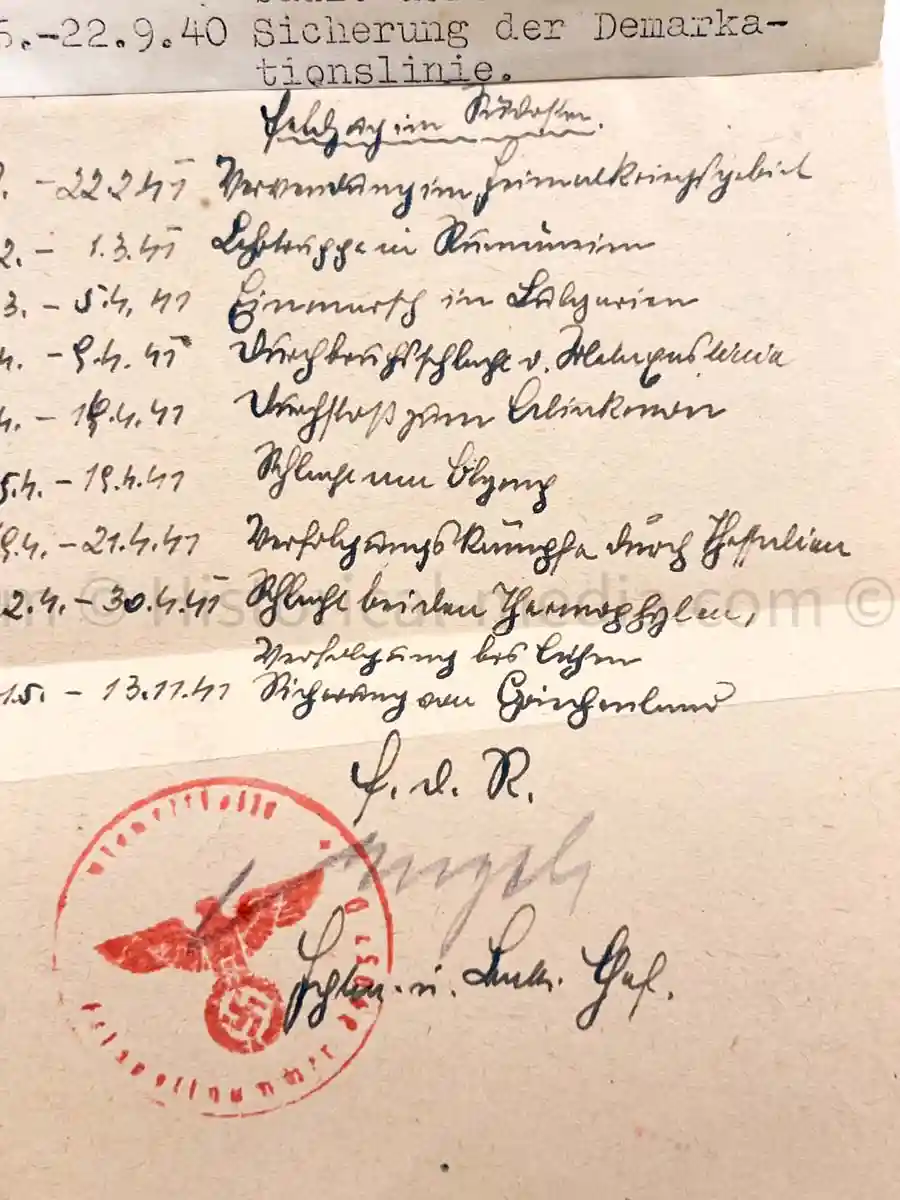 5.-22.9.40 Sicherung der Demarka-
tionslinie.
Feldzug im Südosten.
. - 22.2.41 Verwendung im Heimatkriegsgebiet
2. - 1.3.41 Lehrtruppe in Rumänien
3. - 5.4.41 Einmarsch in Bulgarien
4. - 9.4.41 Durchbruchsschlacht d. Metaxaslinie
4. - 14.4.41 Durchstoß zum Aliakmon
5.4. - 19.4.41 Schlacht um Olymp
9.4. - 21.4.41 Verfolgungskämpfe durch Thessalien
2.4. - 30.4.41 Schlacht bei den Thermophylen,
Verfolgung bis Athen
1.5. - 13.11.41 Sicherung von Griechenland
© Historical-media.com ©
F. d. R.
Dienststelle
Feldpostnummer
Oblt. u. Battr. Chef.